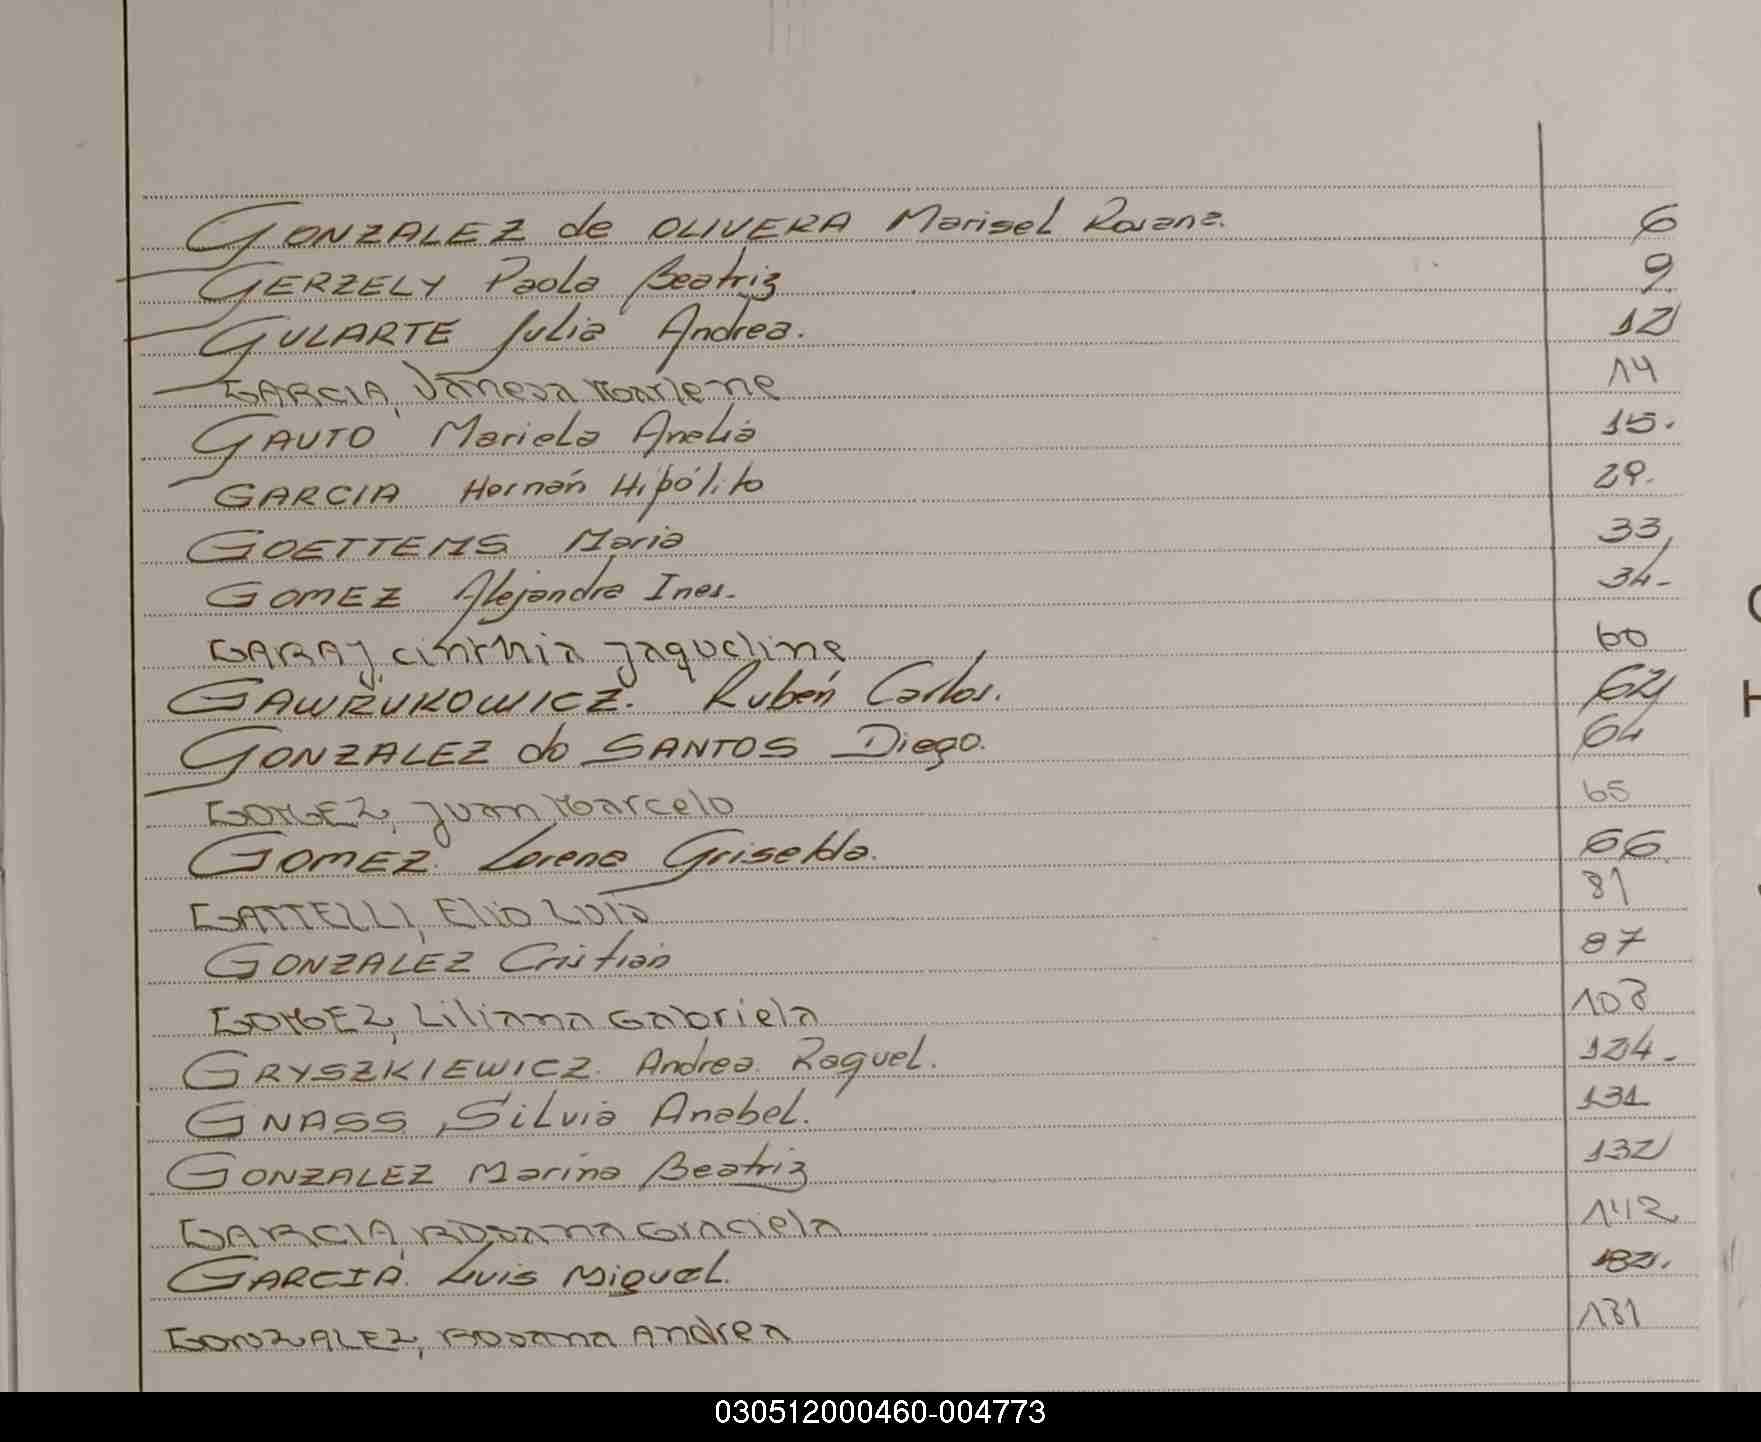 GONZALEZ de OLIVERA Marisel Rosana. 6
GERZELY Paola Beatriz 9
GULARTE Julia Andrea. 12
GARCIA, Vanesa Marlene 14
GAUTO Mariela Analia 15.
GARCIA Hernán Hipólito 29.
GOETTEMS Maria 33
GOMEZ Alejandra Ines. 34-
GARAY, cinthia jaqueline 60
GAWRUKOWICZ. Rubén Carlos. 62
GONZALEZ do SANTOS Diego. 64
GOMEZ, juan Marcelo 65
GOMEZ. Lorena Griselda. 66
GATTELLI, Elio Luis 81
GONZALEZ Cristian 87
GOMEZ, Liliana Gabriela 108
GRYSZKIEWICZ. Andrea Raquel. 124.
GNASS, Silvia Anabel. 131
GONZALEZ Marina Beatriz 132
GARCIA, ROsana Graciela 142
GARCIA. Luis Miguel.
GONZALEZ, ROsana Andrea
030512000460-004773